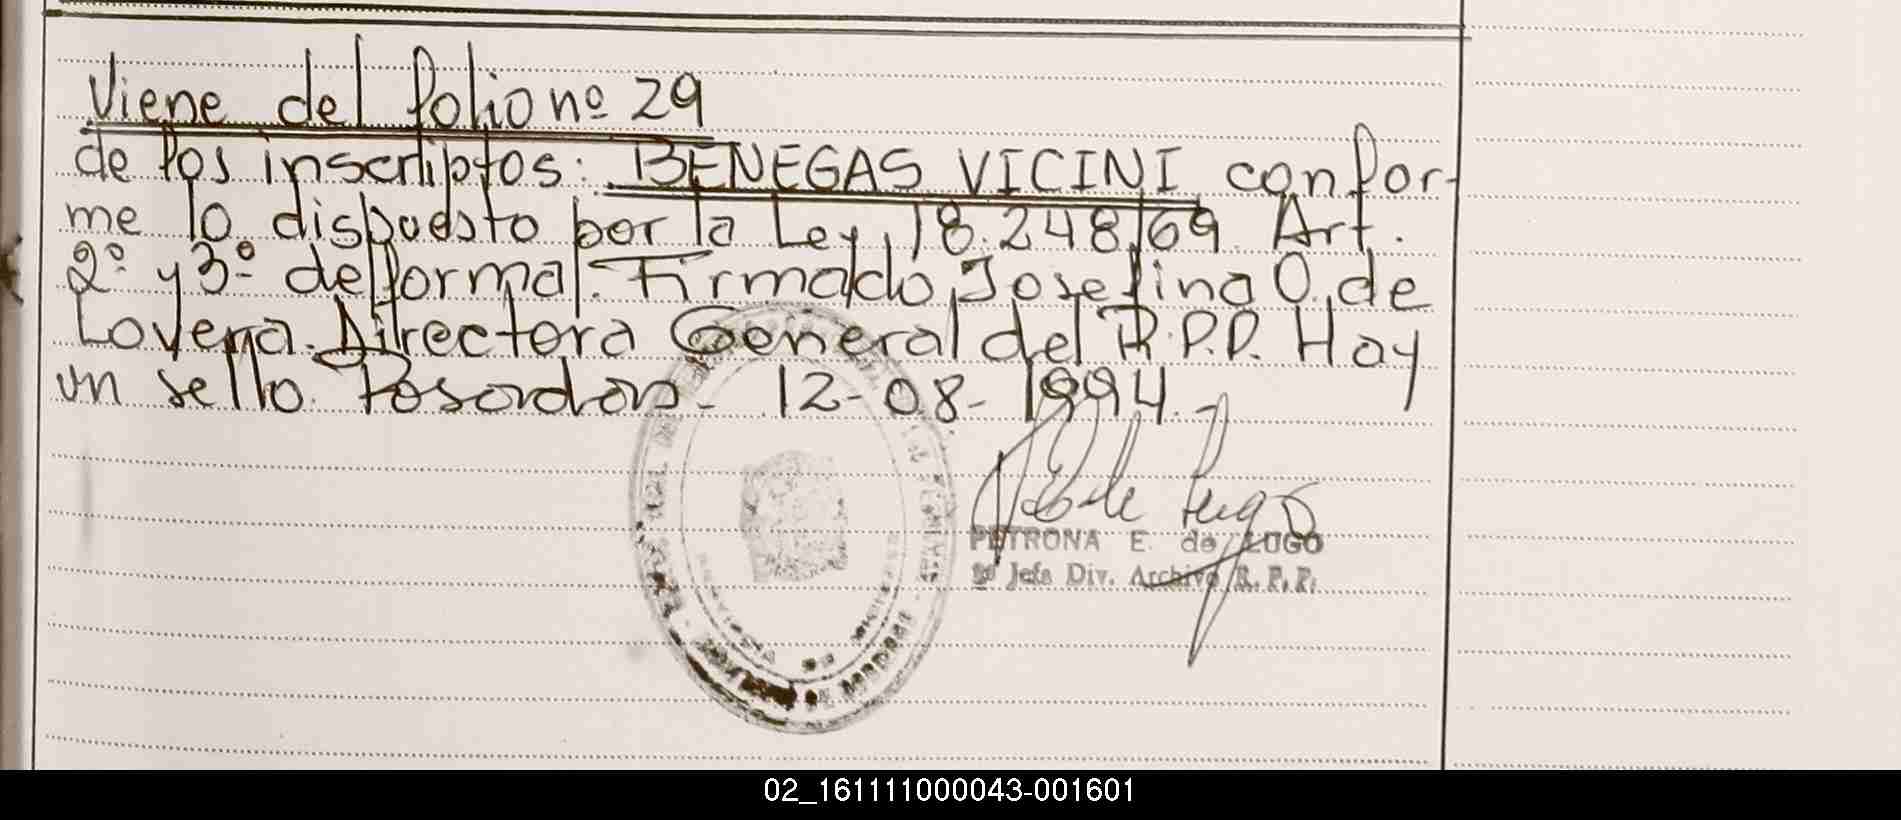 Viene del folio nº 29
de los inscriptos: BENEGAS VICINI confor-
me lo dispuesto por la Ley 18.248/69 Art.
2º y 3º del formal. Firmado Josefina O. de
Lovera. Directora General del R.P.P. Hay
un sello. Posadas - 12-08-1994.-
PETRONA E. de LUGO
Jefa Div. Archivo R.P.P.
02_161111000043-001601